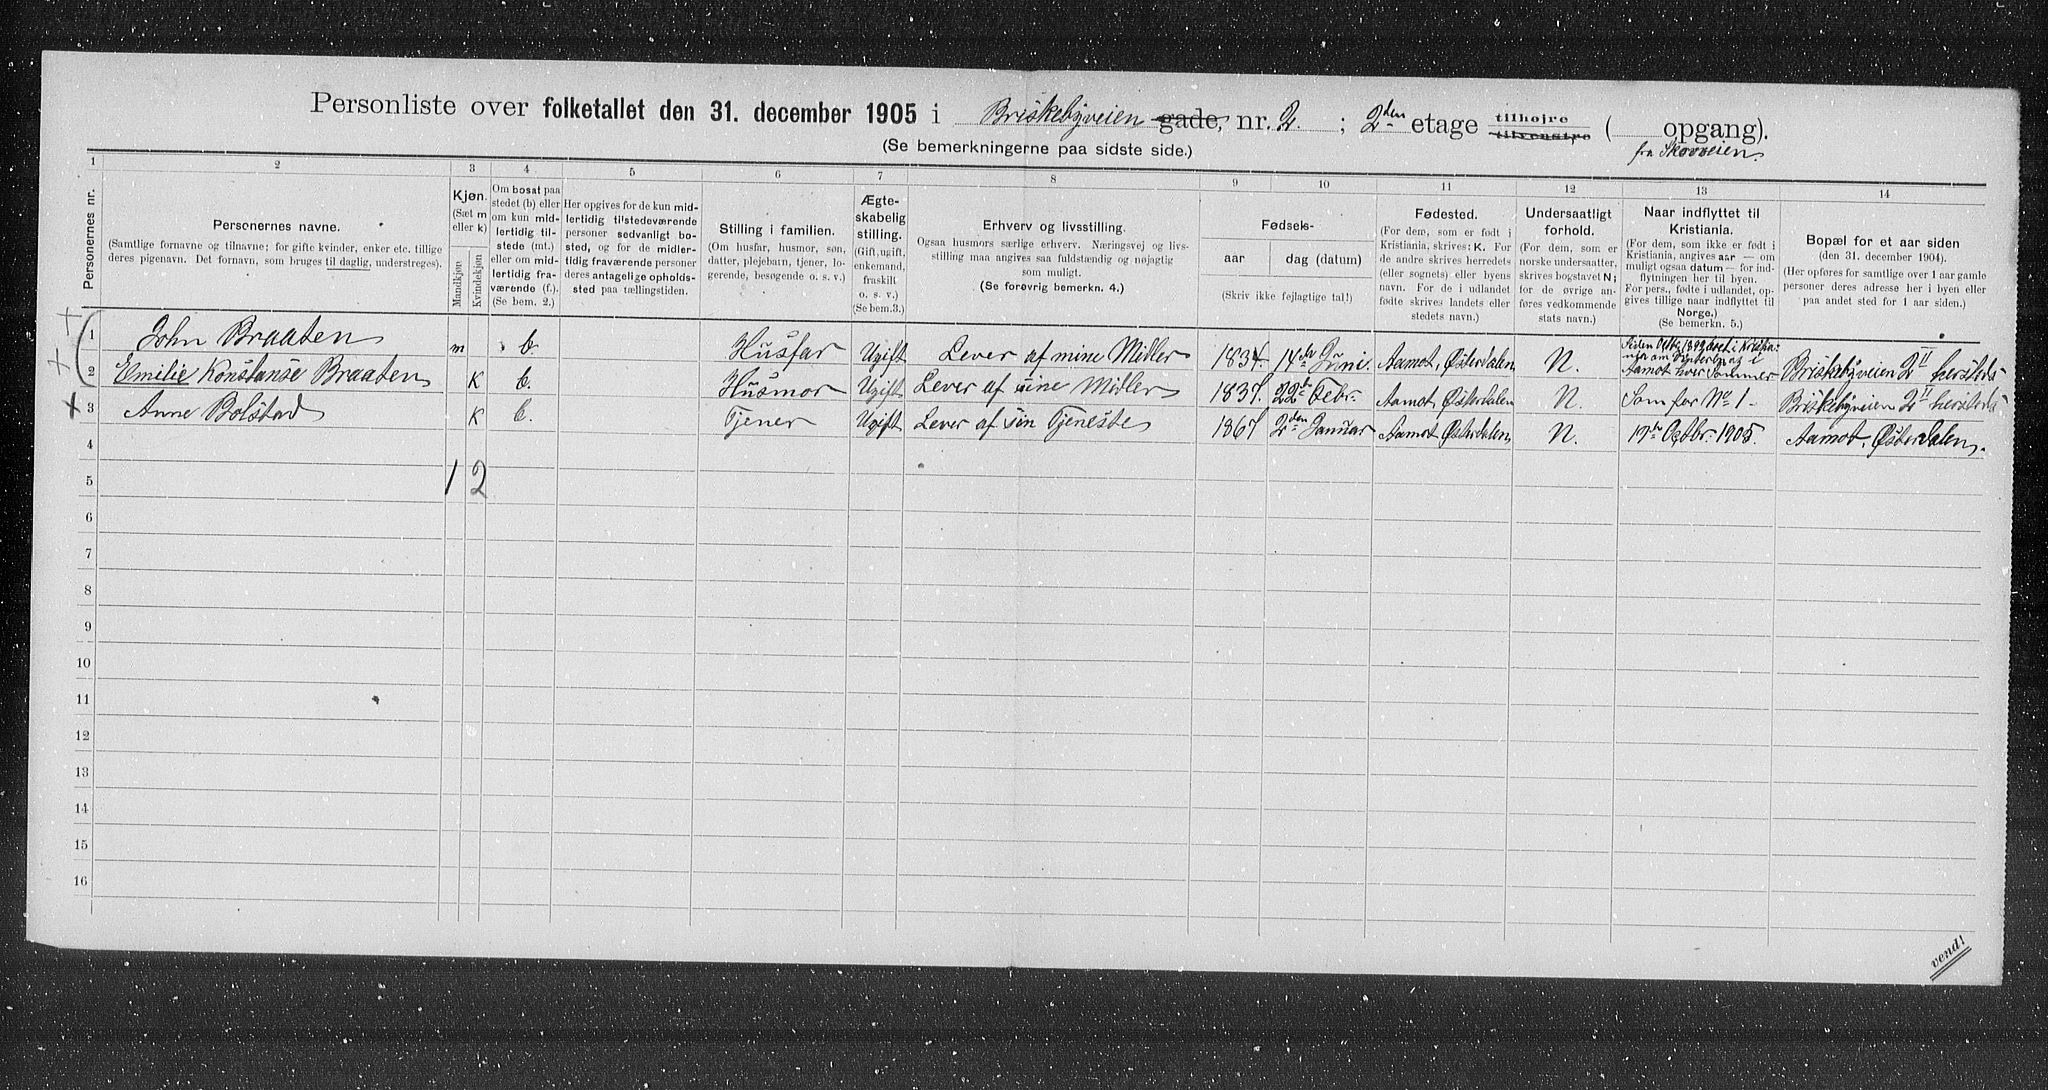 Personliste over folketallet den 31. december 1905 i Briskebyveien gade, nr. 2. ; 2den etage tilhøjre tilvenstre ( opgang).
(Se bemerkningerne paa sidste side.) fra Skovveien.
1 2 3 4 5 6 7 8 9 10 11 12 13 14
Personernes nr.
Personernes navne.
(Samtlige fornavne og tilnavne; for gifte kvinder, enker etc. tillige
deres pigenavn. Det fornavn, som bruges til daglig, understreges).
Kjøn.
(Sæt m
eller k)
Mandkjøn
Kvindekjøn
Om bosat paa
stedet (b) eller
om kun mid-
lertidig til-
stede (mt.)
eller om mid-
lertidig fra-
værende (f.)
(Se bem. 2.)
Her opgives for de kun mid-
lertidig tilstedeværende
personer sedvanlig bo-
sted, og for de midler-
tidig fraværende personer
deres antagelige opholds-
sted paa tællingstiden.
Stilling i familien.
(Om husfar, husmor, søn,
datter, plejebarn, tjener, lo-
gerende, besøgende o. s. v.)
Ægte-
skabelig
stilling.
(Gift, ugift,
enkemand,
fraskilt
o. s. v.)
(Se bem.3.)
Erhverv og livsstilling.
Ogsaa husmors særlige erhverv. Næringsvej og livs-
stilling maa angives saa fuldstændig og nøjagtig
som muligt.
(Se forøvrig bemerkn. 4.)
Fødsels-
aar dag (datum)
(Skriv ikke fejlagtige tal!)
Fødested.
(For dem, som er født i
Kristiania, skrives: K. For
de andre skrives herredets
(eller sognets) eller byens
navn. For de i udlandet
fødte skrives landets eller
stedets navn.)
Undersaatligt
forhold.
(For dem, som er
norske undersaatter,
skrives bogstavet N;
for de øvrige an-
føres vedkommende
stats navn.)
Naar indflyttet til
Kristiania.
(For dem, som ikke er født i
Kristiania, angives aar — om
muligt ogsaa datum — for ind-
flytningen her til byen.
For pers., fødte i udlandet, op-
gives tillige naar indflyttet til
Norge.)
(Se bemerkn. 5.)
Bopæl for et aar siden
(den 31. december 1904).
(Her opføres for samtlige over 1 aar gamle
personer deres adresse her i byen eller
paa andet sted for 1 aar siden.)
1 John Braaten m b. Husfar Ugift Lever af mine Midler 1834. 14de Juni Aamot, Østerdalen N. Siden 1892 i Kristia- nia om Vinteren og i Aamot hver Sommer Briskebyveien 2 II
2 Emilie Konstanse Braaten K b. Husmor Ugift Lever af sine Midler 1837. 22de Febr. Aamot, Østerdalen N. Som for No 1 - Briskebyveien 2 II
3 Anne Bolstad K b. Tjener Ugift Lever af sin Tjeneste 1867 2den Januar Aamot, Østerdalen N. Octbr. 1905. Aamot, Østerdalen.
4
5 1 2
6
7
8
9
10
11
12
13
14
15
16
vend!